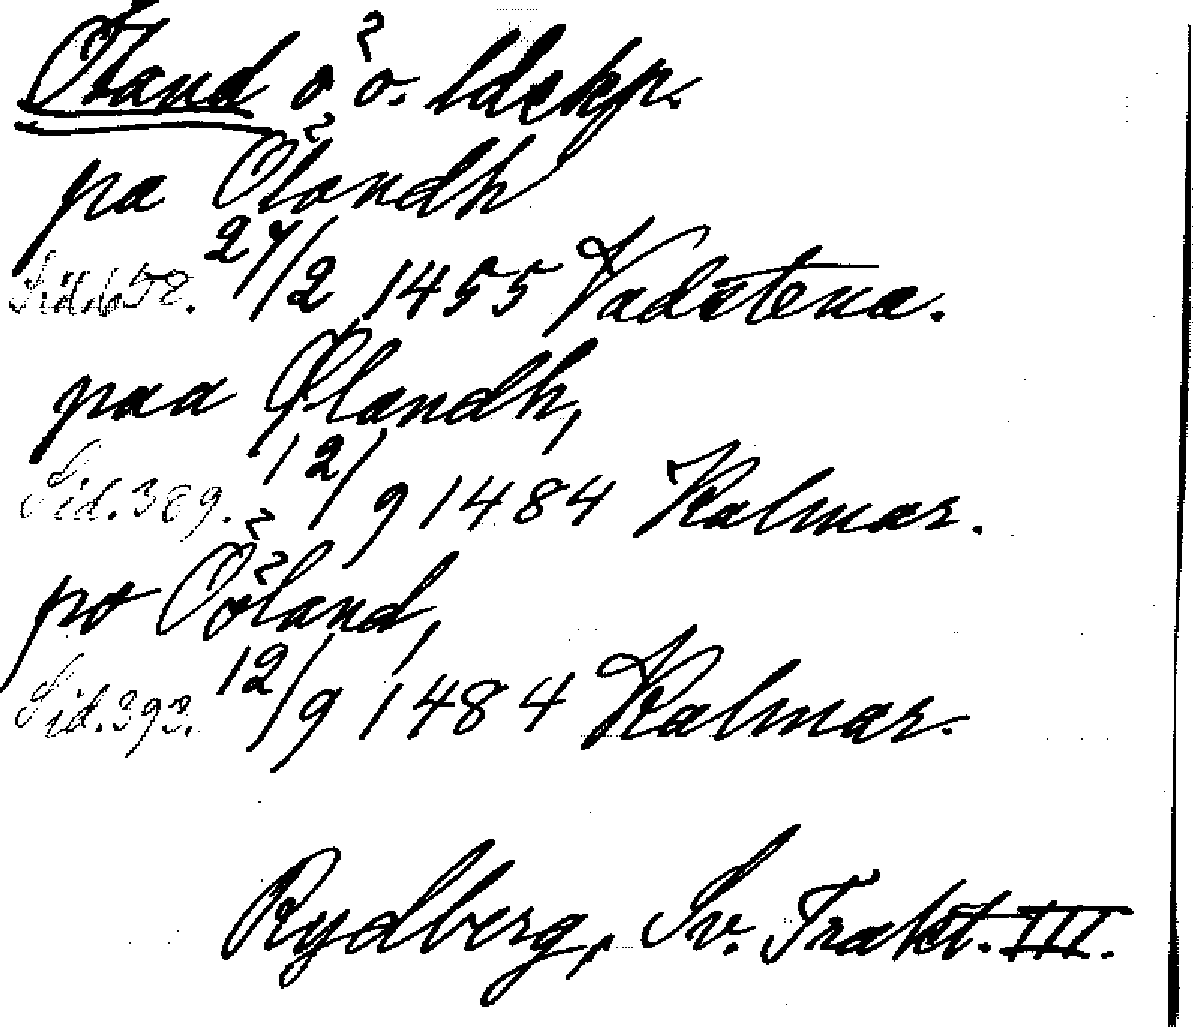 Öland ö o. ldskp.
på Ölandh
Sid. 658. 24/2 1455 Vadstena.
paa Ølandh,
Sid. 389. 12/9 1484 Kalmar.
po Ööland,
Sid. 393. 12/9 1484 Kalmar.
Rydberg, Sv. Trakt. III.